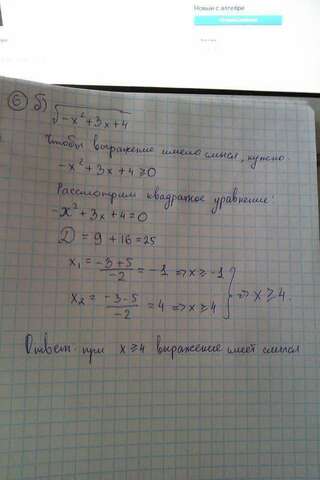 Новым с алгебре
⑥ б) √-x²+3x+4
Чтобы выражение имело смысл, нужно
-x²+3x+4≥0
Рассмотрим квадратное уравнение:
-x²+3x+4=0
D = 9+16=25
x₁ = (-3+5)/(-2) = -1 ⇒ x ≥ -1
x₂ = (-3-5)/(-2) = 4 ⇒ x ≥ 4 } ⇒ x ≥ 4.
Ответ: при x ≥ 4 выражение имеет смысл